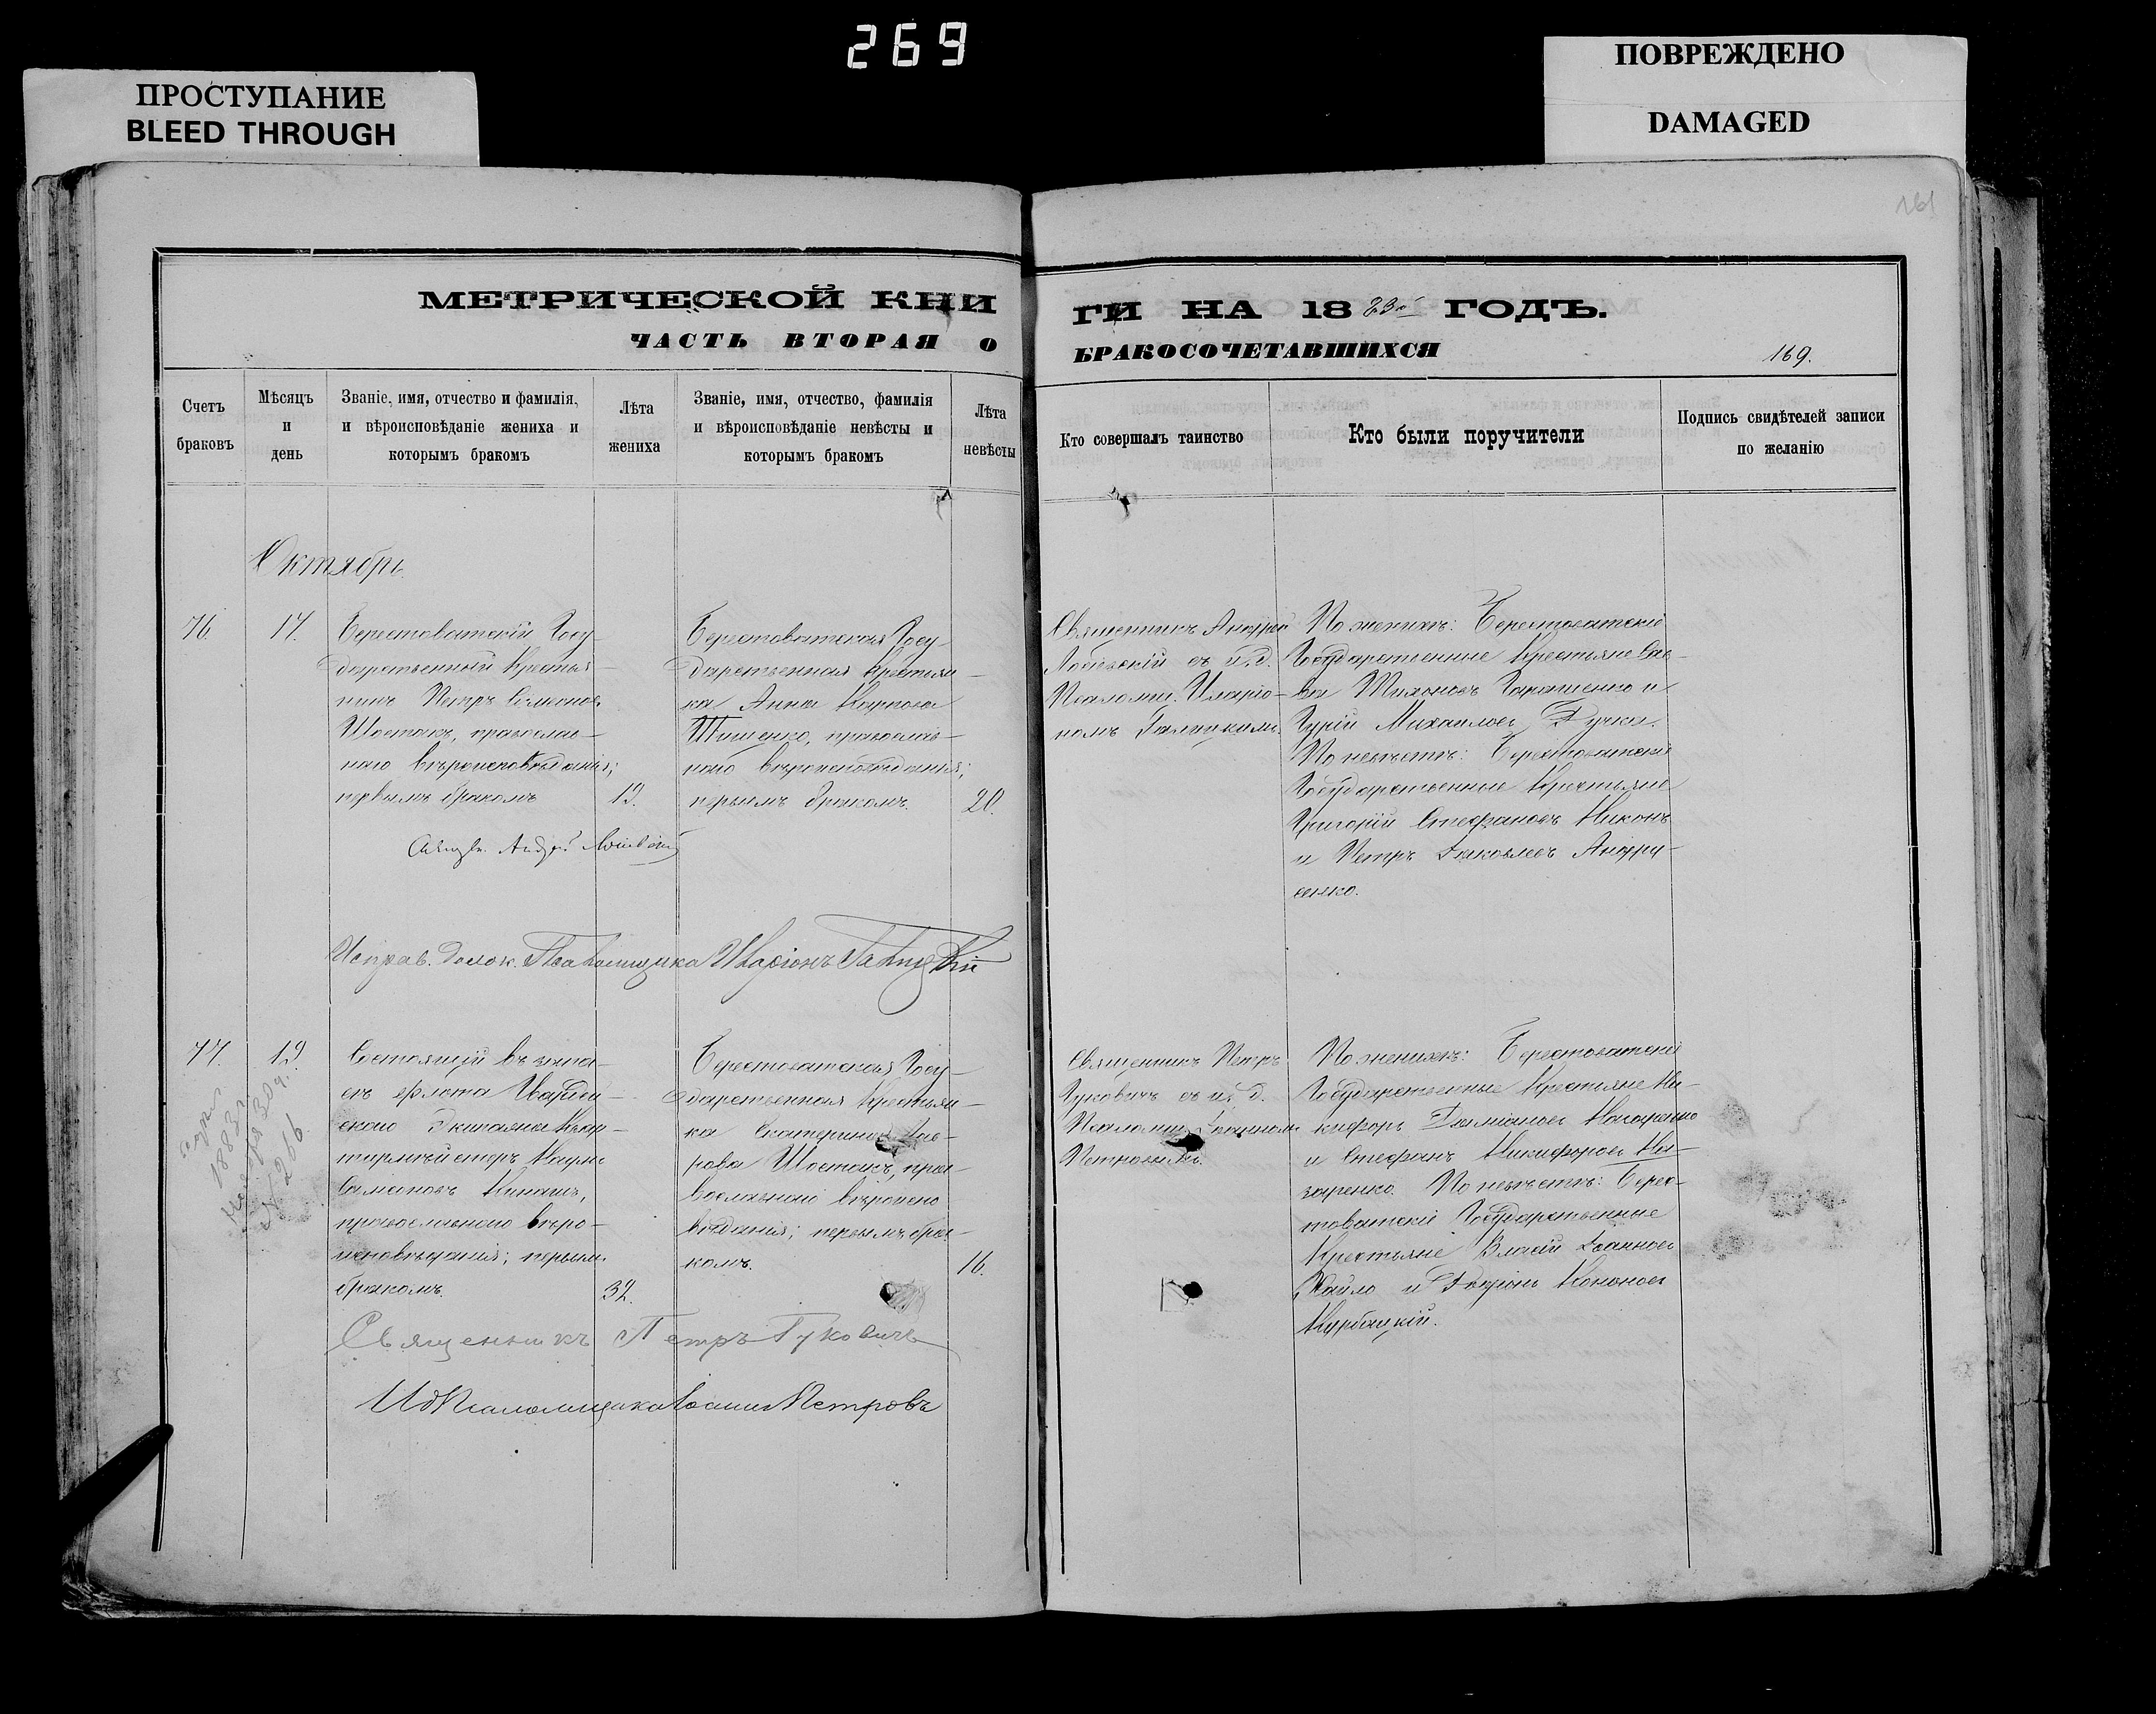 269
ПРОСТУПАНИЕ
BLEED THROUGH
ПОВРЕЖДЕНО
DAMAGED
161
МЕТРИЧЕСКОЙ КНИ
ЧАСТЬ ВТОРАЯ О
ГИ НА 18 83й ГОДЪ.
БРАКОСОЧЕТАВШИХСЯ
169.
Счетъ
браковъ
Мѣсяцъ
и
день
Званіе, имя, отчество и фамилія,
и вѣроисповѣданіе жениха и
которымъ бракомъ
Лѣта
жениха
Званіе, имя, отчество, фамилія
и вѣроисповѣданіе невѣсты и
которымъ бракомъ
Лѣта
невѣсты
Кто совершалъ таинство
Кто были поручители
Подпись свидѣтелей записи
по желанію
Октябрь.
76.
17.
Берестоватскій Госу-
дарственный Крестья-
нинъ Петръ Семеновъ
Шостакъ, православ-
наго вѣроисповѣданія;
первымъ бракомъ
19.
Берестоватская Госу-
дарственная Крестьян-
ка Анна Карпова
Тищенко, православ-
наго вѣроисповѣданія;
первымъ бракомъ.
20.
Священникъ Андрей
съ и. д.
Псаломщ. Иларіо-
номъ Галицкимъ.
По женихѣ: Берестоватскіе
Государственные Крестьяне Сав-
ва Тихоновъ Гаращенко и
Гурій Михаиловъ Бучка.
По невѣстѣ: Берестоватскіе
Государственные Крестьяне
Григорій Стефановъ Никонъ
и Петръ Іаковлевъ Андру-
сенко.
Священ. Андрей
Исправ. Долж. Псаломщика Иларіонъ Галицкій
77.
19.
Состоящій въ запа-
сѣ флота Гвардей-
скаго Экипажа Квар-
тирмейстеръ Наумъ
Симеоновъ Кинашъ,
православнаго вѣро-
исповѣданія; первымъ
бракомъ.
32.
Берестоватская Госу-
дарственная Крестьян-
ка Екатерина Лав-
рова Шостакъ, пра-
вославнаго вѣроиспо
вѣданія; первымъ бра-
комъ.
16.
Священникъ Петръ
Гуковичъ съ и. д.
Псаломщ. Іоанномъ
Петровымъ.
По женихѣ: Берестоватскіе
Государственные Крестьяне Ни-
кифоръ Даміановъ Макаренко
и Стефанъ Никифоровъ На-
заренко. По невѣстѣ: Берес-
товатскіе Государственные
Крестьяне Власій Іоанновъ
Кайло и Иларіонъ Кононовъ
Курбацкій.
1883 г.
Ноября 30 д.
№ 266
Священникъ Петръ Гуковичъ
ИдПсаломщика Іоаннъ Петровъ